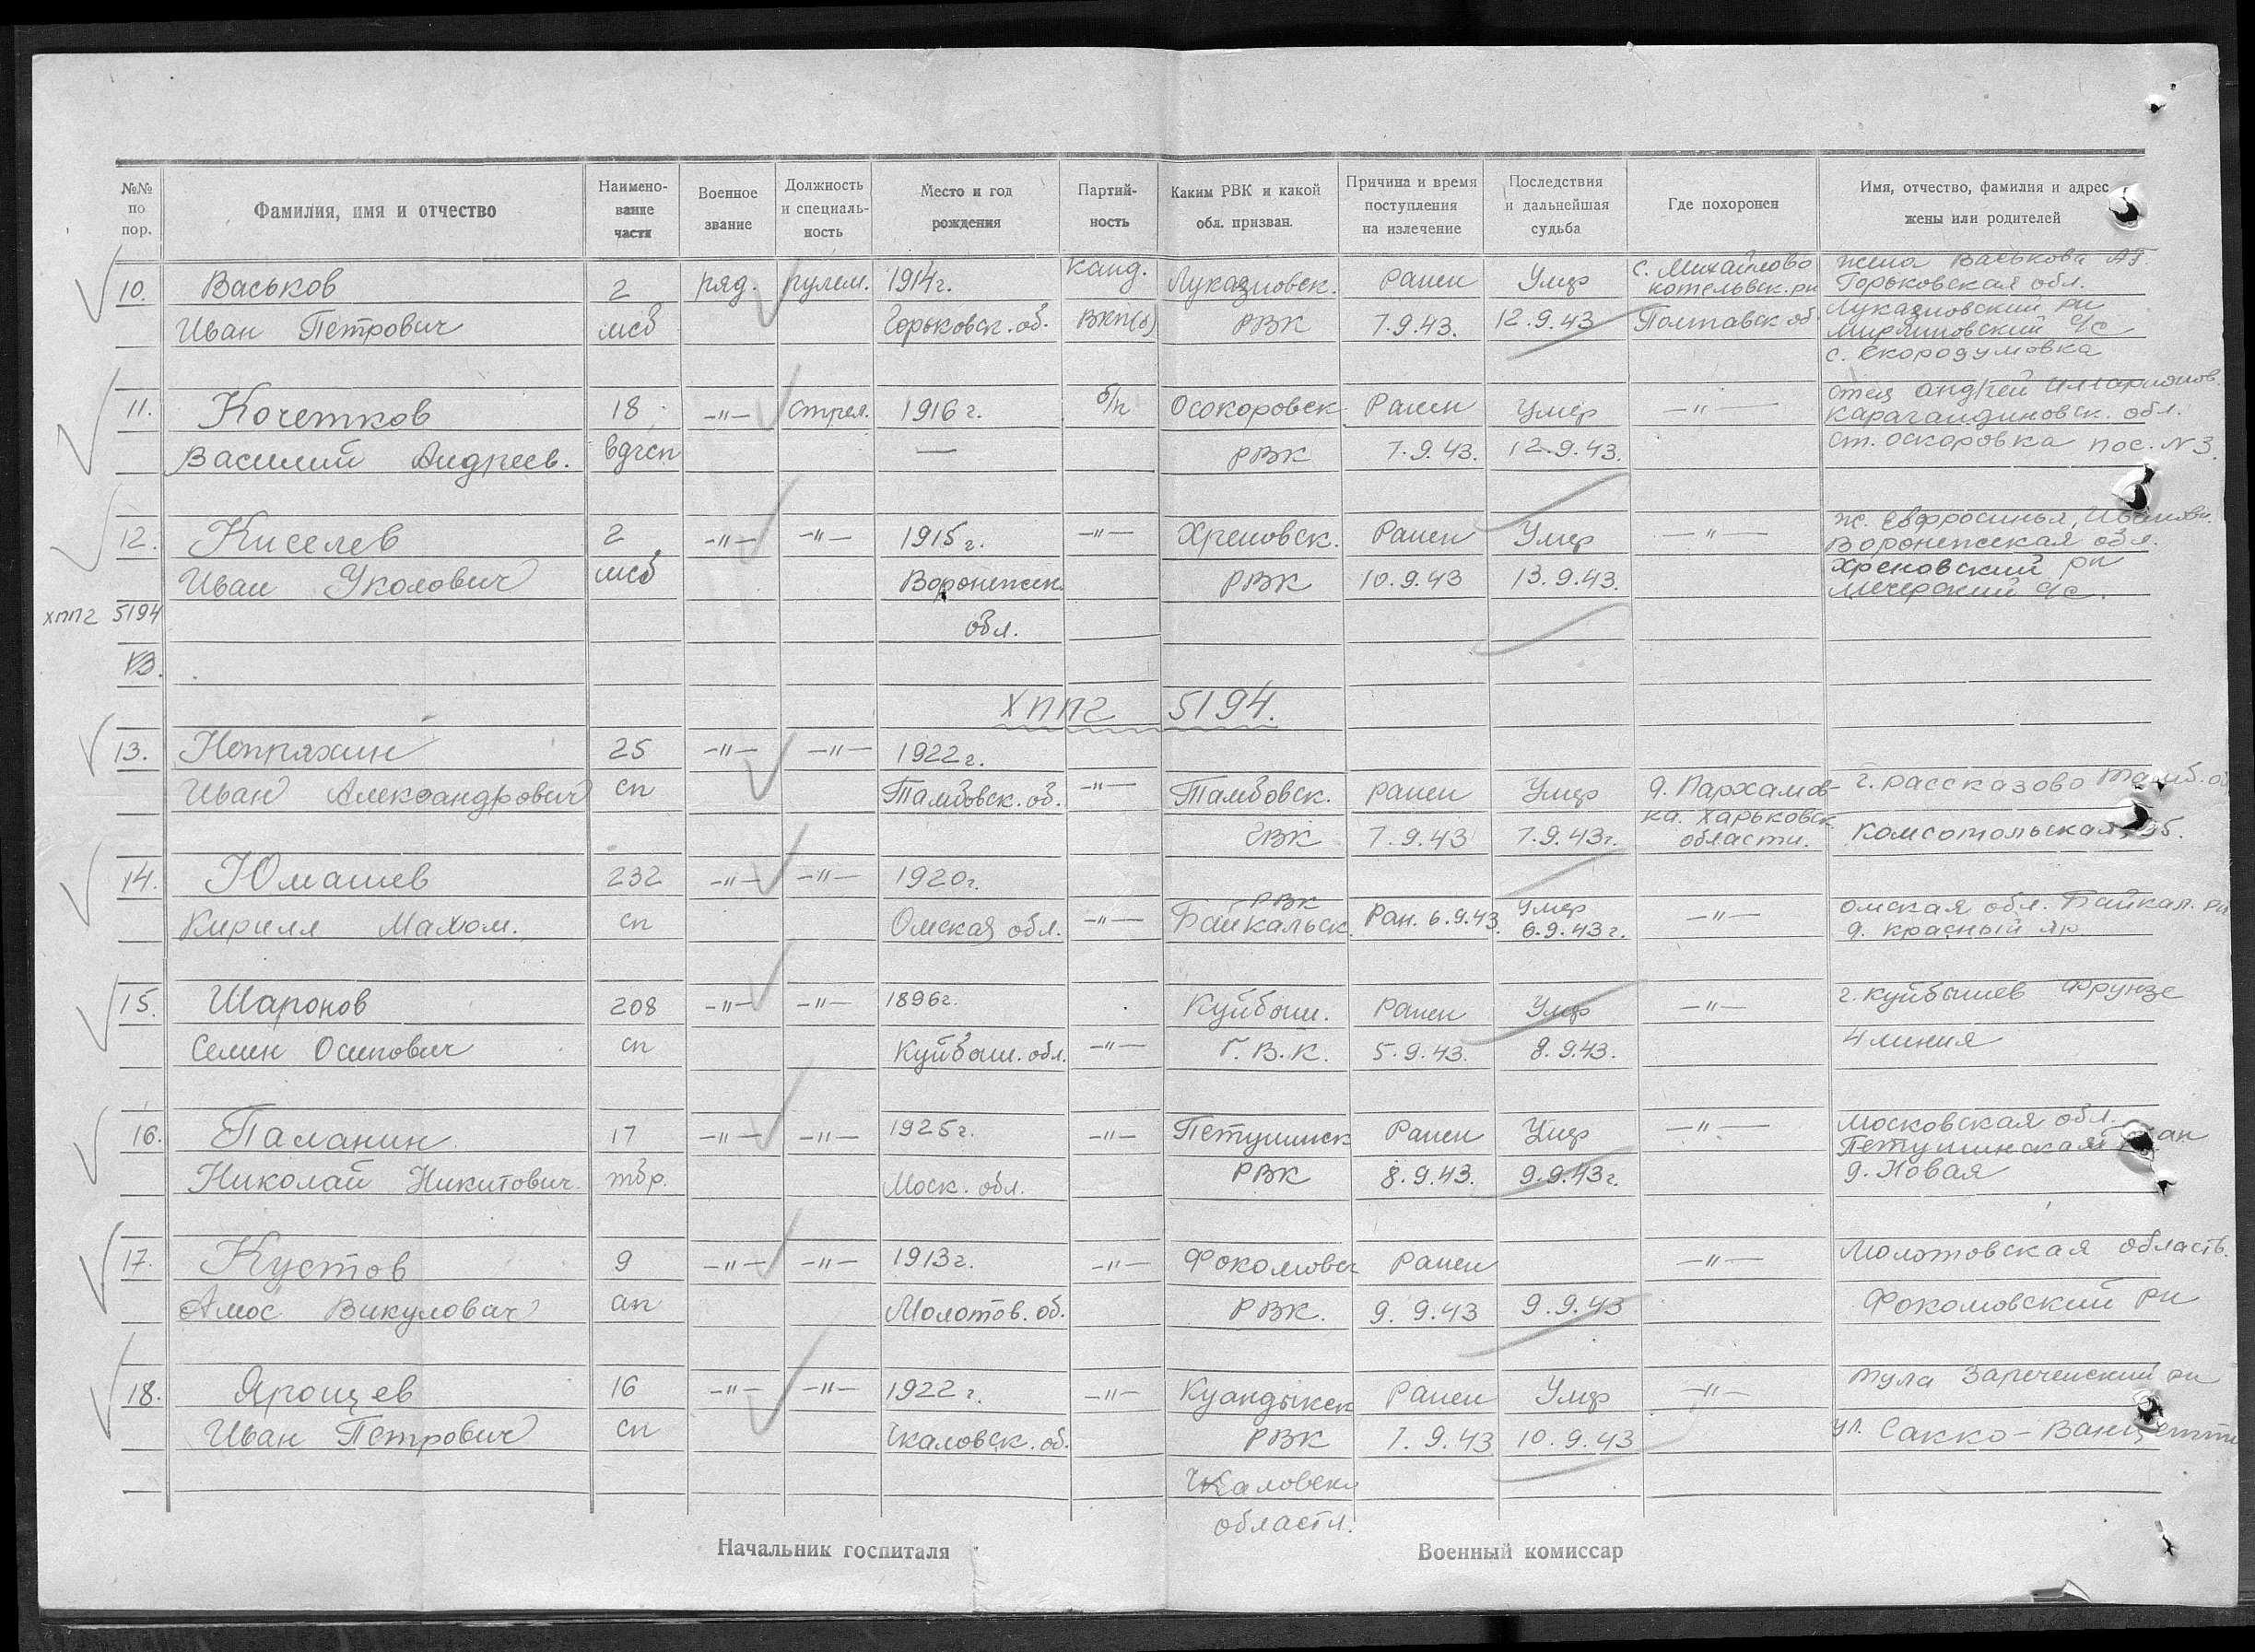 №№ по пор.
Фамилия, имя и отчество
Наимено-вание части
Военное звание
Должность и специаль-ность
Место и год рождения
Партий-ность
Каким РВК и какой обл. призван.
Причина и время поступления на излечение
Последствия и дальнейшая судьба
Где похоронен
Имя, отчество, фамилия и адрес жены или родителей
10. Васьков 2 ряд. пулем. 1914г. канд. Лукояновск. Ранен Умер с. Михайлово котельвск. рн жена Васькова АГ. Горьковская обл.
Иван Петрович мсб Горьковск. об. ВКП(б) РВК 7.9.43. 12.9.43 Полтавск об Лукояновский рн с/с
с. Скородумовка
11. Кочетков 18 -"- стрел. 1916г. б/п Осокоровск Ранен Умер -"- отец Андрей Илларионов. Карагандиновск. обл.
Василий Андреев. вдгсп — РВК 7.9.43. 12.9.43. ст. оскоровка пос. N3.
12. Киселев 2 -"- -"- 1915г. -"- Хреновск. Ранен Умер -"- ж. Ефросинья Воронежская обл.
Иван Уколович мсб Воронежск РВК 10.9.43 13.9.43. Хреновский рн с/с.
хппг 5194 обл.
13.
ХППГ 5194.
13. Непряхин 25 -"- -"- 1922г.
Иван Александрович сп Тамбовск. об. -"- Тамбовск. ранен Умер д. Пархамов- г. рассказово тамб. об
ГВК 7.9.43 7.9.43г. ка. Харьковск. области. Комсомольская
14. Юмашев 232 -"- -"- 1920г.
Кирилл Махом. сп Омская обл. -"- РВК Байкальск. Ран. 6.9.43. Умер 6.9.43г. -"- омская обл. Байкал. рн
д. красный яр.
15. Шаронов 208 -"- -"- 1896г. Куйбыш. Ранен Умер -"- г. Куйбышев Фрунзе
Семен Осипович сп Куйбыш. обл. -"- Г.В.К. 5.9.43. 8.9.43. 4 линия
16. Паланин 17 -"- -"- 1925г. -"- Петушинск Ранен Умер -"- Московская обл.
Петушинская
Николай Никитович тбр. Моск. обл. РВК 8.9.43. 9.9.43г. д. Новая
17. Кустов 9 -"- -"- 1913г. -"- Фоколовск Ранен -"- Молотовская область.
Амос Викулович ап Молотов. об. РВК. 9.9.43 9.9.43 Фокомовский рн
18. Ярощев 16 -"- -"- 1922г. -"- Куандыкск Ранен Умер -"- Тула Зареченский рн
Иван Петрович сп Чкаловск. об. РВК 7.9.43 10.9.43 ул. Сакко-Ванцетти
Чкаловск
области.
Начальник госпиталя
Военный комиссар